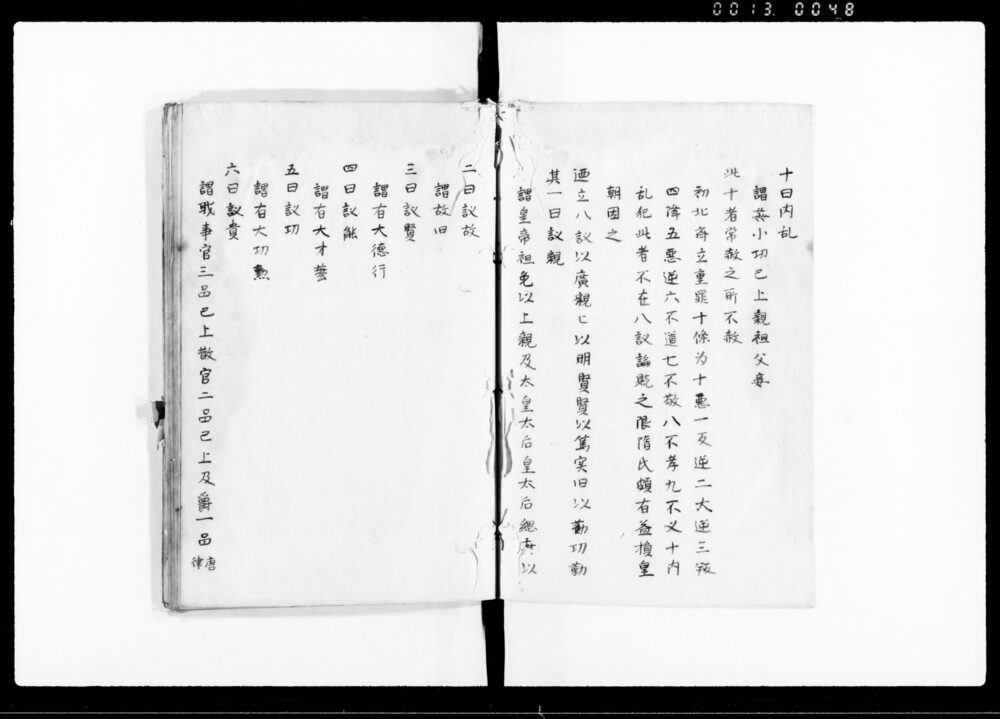 0013 0048
十曰内乱
謂姦小功已上親祖父妾
此十者常赦之所不赦
初北斉立重罪十條为十悪一反逆二大逆三叛
四降五悪逆六不道七不敬八不孝九不义十内
乱犯此者不在八议論贖之限隋氏頗有益損皇
朝因之
迺立八议以廣親〻以明賢賢以篤实旧以勸功勤
其一曰议親
謂皇帝祖免以上親及太皇太后皇太后緦麻以
二曰议故
謂故旧
三曰议賢
謂有大德行
四曰议能
謂有大才藝
五曰议功
謂有大功勲
六曰议貴
謂職事官三品已上散官二品已上及爵一品唐律